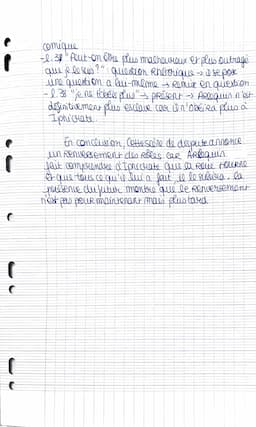 comique
- l.38 "Peut-on être plus malheureux et plus outragé
que je le suis?" : question rhétorique → il se pose
une question a lui-même → remise en question
- l.38 "je ne t'obéis plus" → présent → Arlequin n'est
définitivement plus esclave car il n'obéira plus à
Iphicrate.
En conclusion, cette scène de dispute annonce
un renversement des rôles car Arlequin
fait comprendre à Iphicrate que la roue tourne
et que tous ce qu'il lui a fait, il le subira. La
présence du futur montre que le renversement
n'est pas pour maintenant mais plus tard.